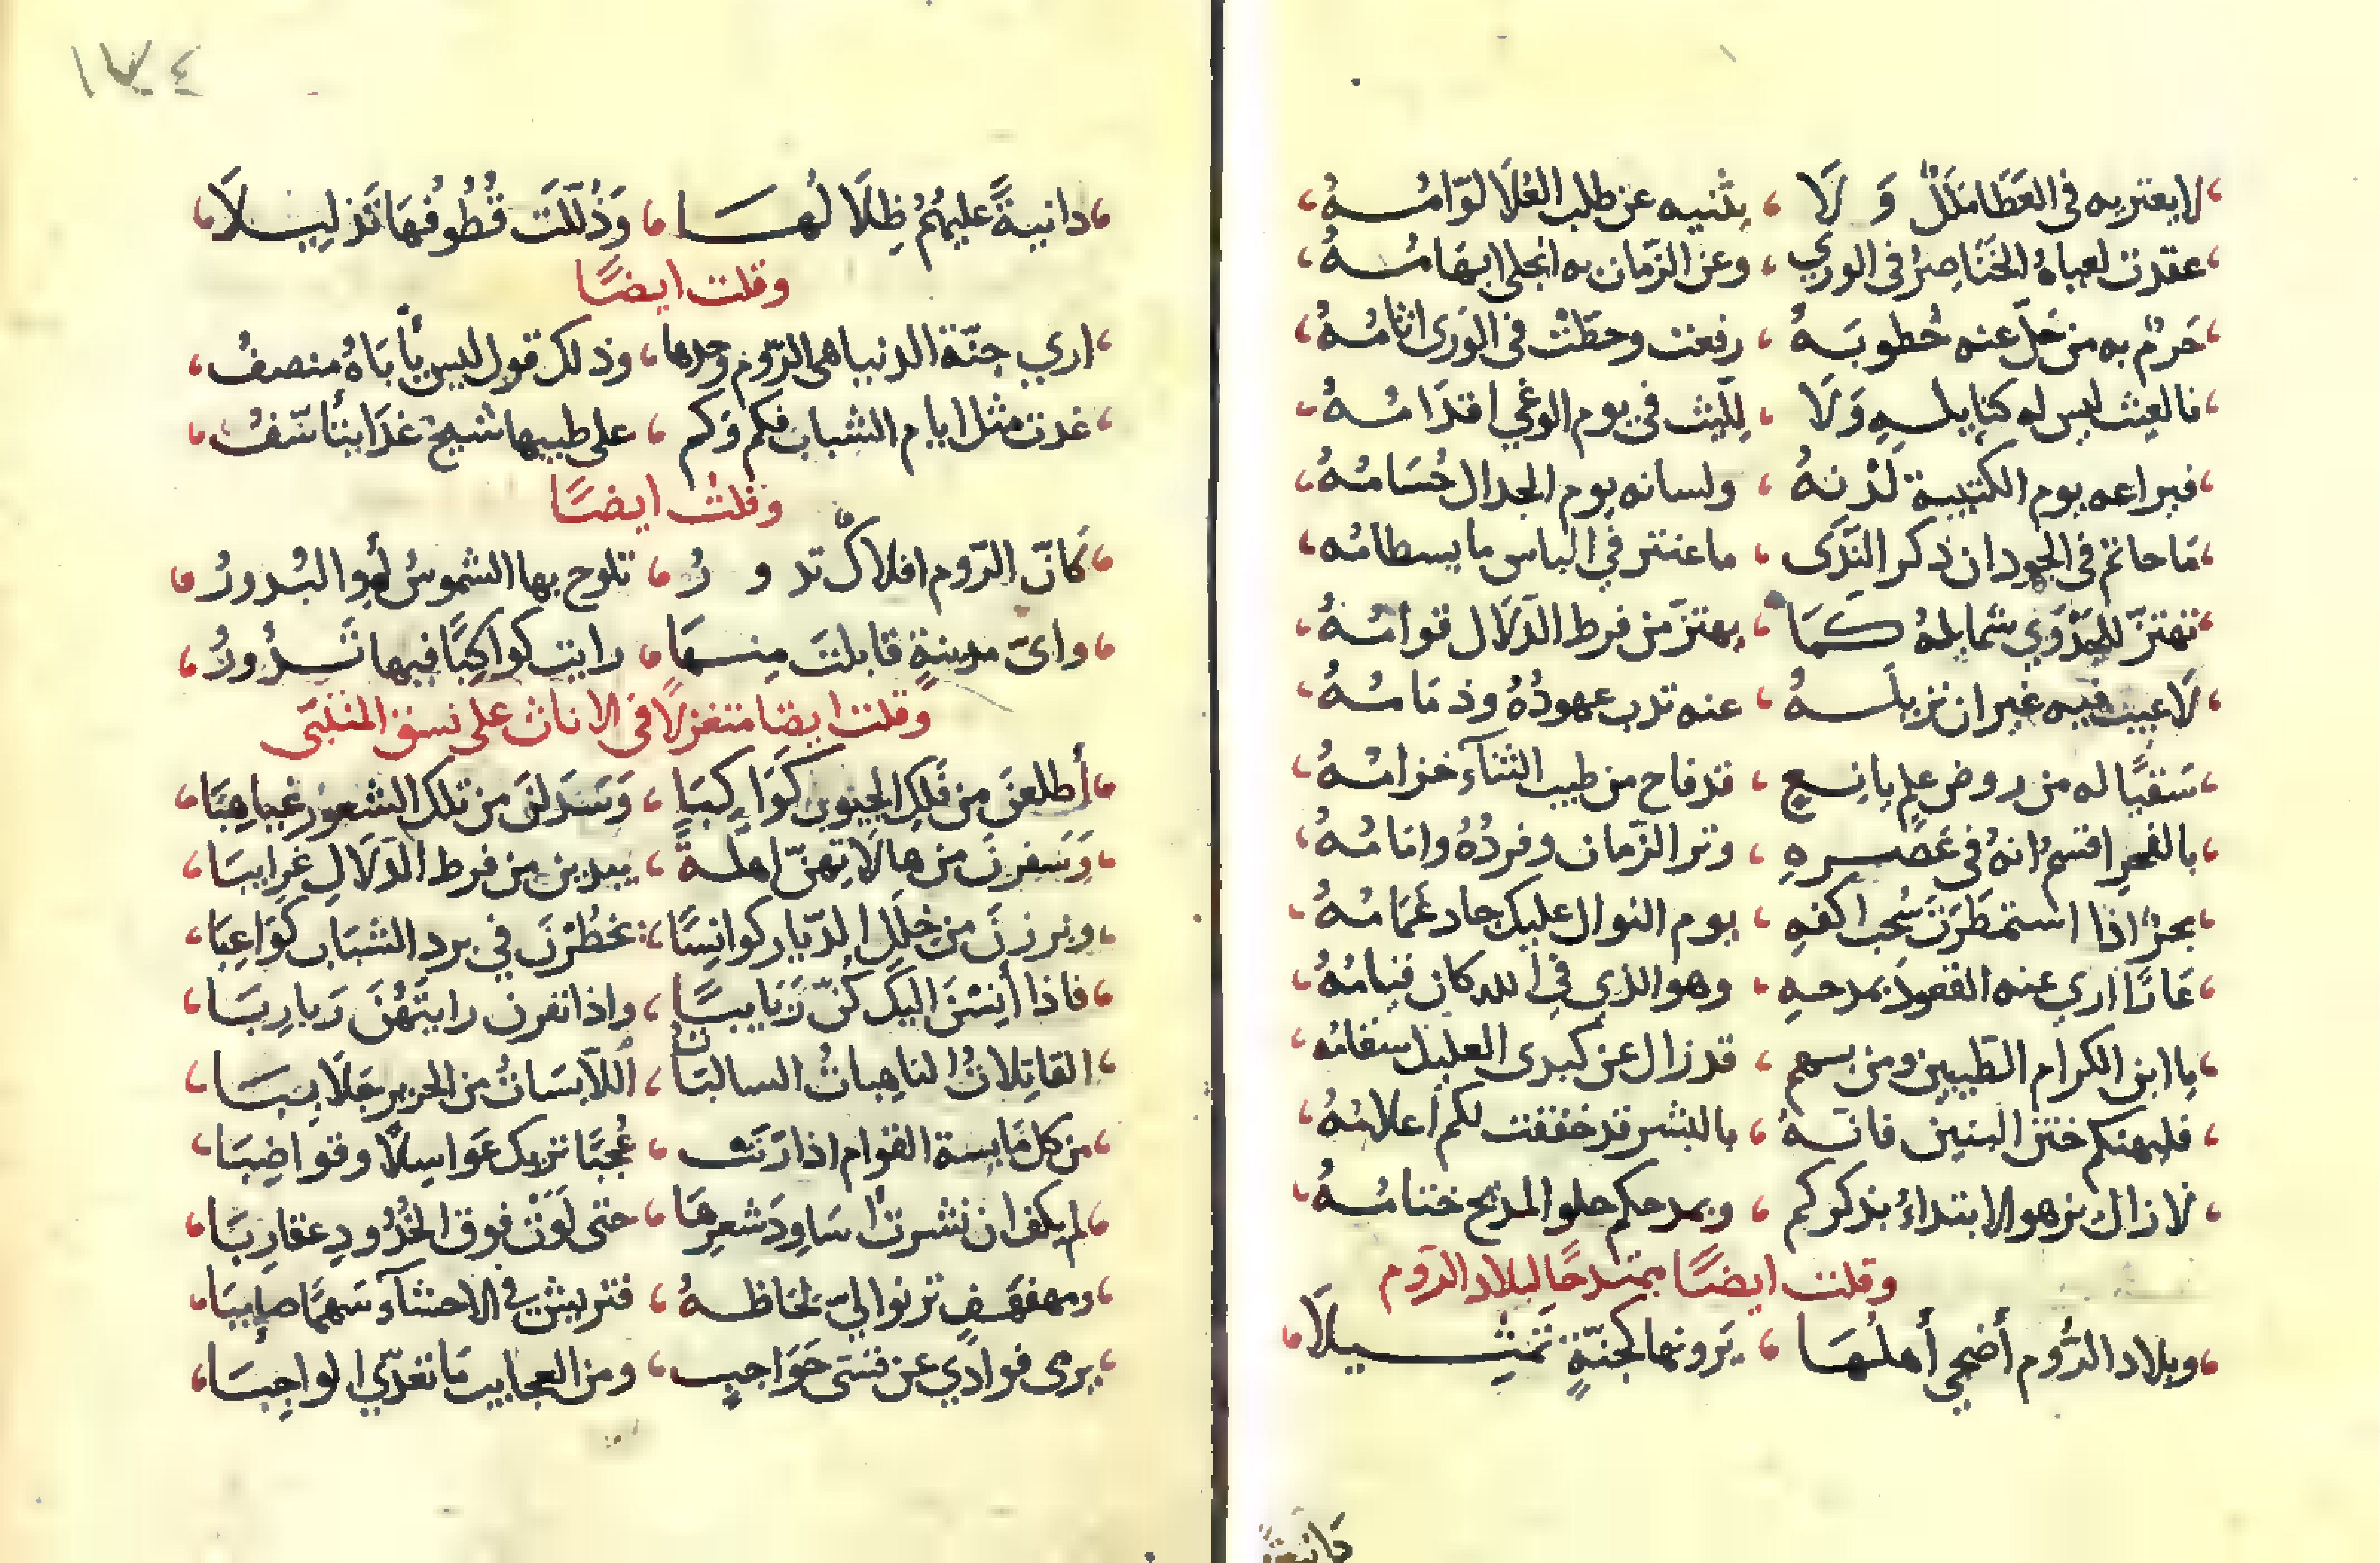 لا يعتريه في العَطَا مَلَلٌ وَ لَا ، يثنيه عن طلب العُلَا لوّامُهُ
عقدت لعباهُ الخَنَاصِرُ في الوري ، وعن الزّمان به انجلى ابهامُهُ
حَرمٌ به من حَلّ عنه خُطوبَهُ ، رفعت وحطّتْ في الوَرى اثامُهُ
فالغيث ليس له كنايلهِ وَلَا ، لِلّيث في يوم الوغي اقدَامُهُ
فيراعه يوم الكتيبة لَدْنهُ ، ولسانه يوم الجدال حُسَامُهُ
مَا حاتم في الجود ان ذكر النَّدَى ، ما عنتر في الباس ما بسطامُه
تهتزّ للجَدْوَي شمايلهُ كَمَا ، يهتزّ من فرط الدّلَال قوامُهُ
لَا عيب فيه غير ان نزيلَهُ ، عنه تذب عهودُهُ وذمَامُهُ
سَقيًا له من روض علم يانِعٍ ، قد فاح من طيب الثنآء خزامُهُ
بالفجرِ اقسمُ انهُ في عَصْرِهِ ، وتر الزّمان وفردُهُ وامامُهُ
بحرٌ اذا استمطَرَت سُحب اكفهِ ، يوم النوال عليك جاد غَمَامُهُ
عَارًا اري عنه القعودَ بمدحهِ ، وهو الذي في الله كان قيامُهُ
يا ابن الكرام الطّيبين ومن بهم ، قد زال عن كبدى العليل سقامُه
فليهنكم ختن البنين فانّهُ ، بالبشر قد خفقت لكم أعلامُهُ
لا زال يزهو الابتداءُ بذكركم ، وبمدحكم حلو المديح ختامُهُ
وقلت ايضًا ممتدحًا لبلاد الرّوم
وبلاد الرُّوم أضحي أهلُهَا ، يَرونها كجنّةٍ تَمْثِيلَا
دانية
١٧٤
دانيةً عليهُمُ ظِلَالُهَا ، وَذُلّلَت قُطُوفُهَا تَذليلَا
وقلت ايضًا
اري جنّة الدنيا هي الرّوم وحدها ، وذلك قول ليس يأبَاهُ منصفُ
غدت مثل ايام الشباب فكم وَكم ، على طيبها شيخ غدَا يتأسّفُ
وقلتُ ايضًا
كانّ الرّوم افلاكٌ تدورُ ، تلوح بها الشموسُ أو البُدورُ
واىّ مدينةٍ قابلتَ مِنهَا ، رايت كواكِبًا فيها تَدُورُ
وقلت ايضًا متغزلًا في الاناث على نسق المتنبّى
أطلعنَ من فَلكِ الجيوبِ كَوَاكِبَا ، وَسَدَلنَ من تلك الشعورِ غياهِبَا
وَسَفرنَ من هالَاتِهنّ اهلّةً ، يبدين من فرط الدّلَالِ غَرايبَا
وبرزنَ من خِلَلِ الدّيار كوانِسًا ، يخطُرْنَ في برد الشبَاب كوَاعِبَا
فاذا أَنِسْنَ اليكَ كُنّ رَبَايبًا ، واذا نفرن رايتَهُنَ رَبارِبَا
القاتِلاتُ الناهِباتُ السالبَاتُ ، اللآبسَاتُ من الحرير جَلَابِبَا
من كل مَايسة القوام اذا رَنَت ، عُجبًا تريك عَواسِلًا وقواضِبَا
لم يكفِ ان نشرت اسَاوِدَ شعرِهَا ، حتى لَوَتْ فوق الخُدُودِ عقارِبَا
ومهفهَفٍ ترنوا اليّ لحَاظهُ ، فتريش في الاحشآء سَهمًا صايبَا
يرمى فوادي عن قسّى حَوَاجبٍ ، ومن العجايب مَا تعدّي الواجِبَا